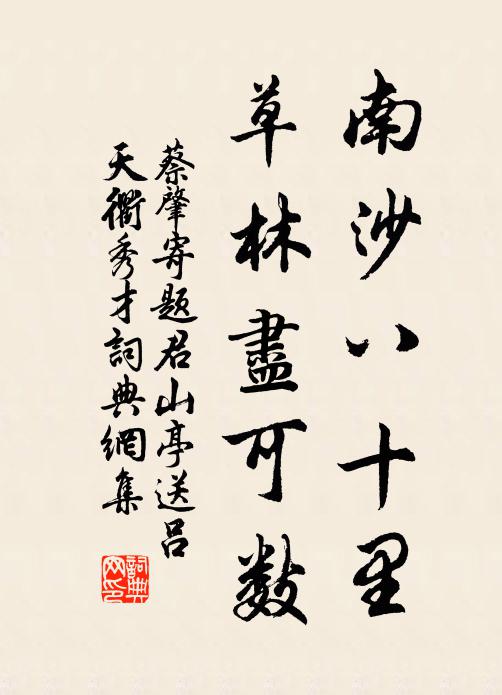 南沙八十里
草林盡可數
蔡肇寄題君山亭送呂
天衢秀才詞典網集
詞典
网印